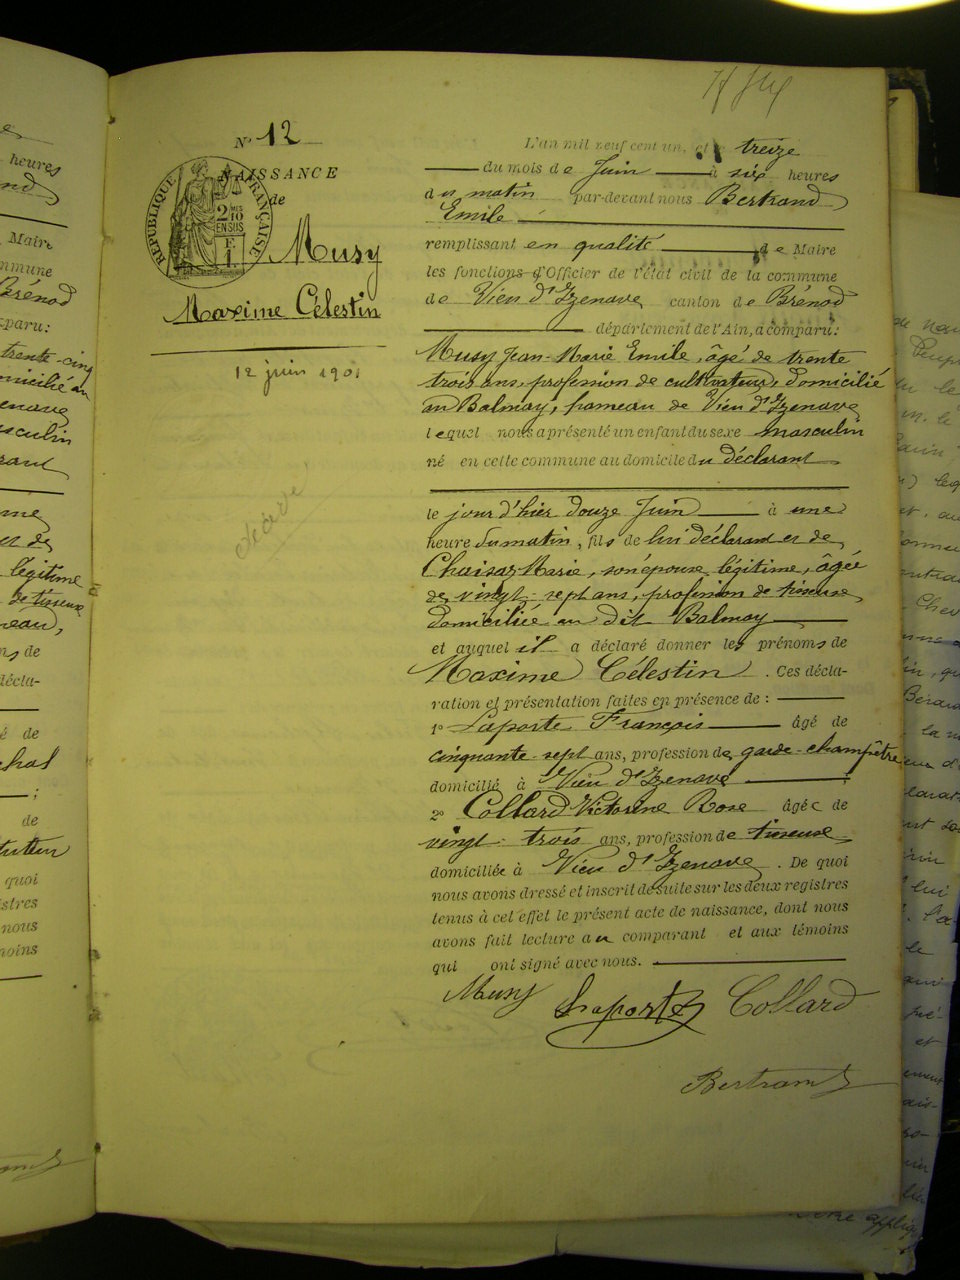 Nº 12
NAISSANCE
de
RÉPUBLIQUE FRANÇAISE
2 MES
10
EN SUS
E
1
Musy
Maxime Célestin
12 juin 1901
décédé
L'an mil neuf cent un, et le treize
du mois de Juin à six heures
du matin par-devant nous Bertrand
Emile
remplissant en qualité de Maire
les fonctions d'Officier de l'état civil de la commune
de Vieu d'Izenave canton de Brénod
département de l'Ain, a comparu:
Musy Jean-Marie Emile, âgé de trente
trois ans, profession de cultivateur, domicilié
au Balmay, hameau de Vieu d'Izenave
lequel nous a présenté un enfant du sexe masculin
né en cette commune au domicile du déclarant
le jour d'hier douze Juin à une
heure du matin, fils de lui déclarant et de
Chaisaz Marie, son épouse légitime, âgée
de vingt-sept ans, profession de tisseuse,
domiciliée au dit Balmay
et auquel il a déclaré donner les prénoms de
Maxime Célestin. Ces décla-
ration et présentation faites en présence de :
1º Laporte François âgé de
cinquante-sept ans, profession de garde-champêtre
domicilié à Vieu d'Izenave ;
2º Collard Victorine Rose âgée de
vingt-trois ans, profession de tisseuse
domiciliée à Vieu d'Izenave. De quoi
nous avons dressé et inscrit de suite sur les deux registres
tenus à cet effet le présent acte de naissance, dont nous
avons fait lecture au comparant et aux témoins
qui ont signé avec nous.
Musy Laporte Collard
Bertrand
heures
Maire
mmune
Brénod
paru:
trente-cinq
omicilié au
enave
asculin
rant
légitime
de tisseuse
ns de
décla-
é de
;
de
quoi
istres
nous
moins